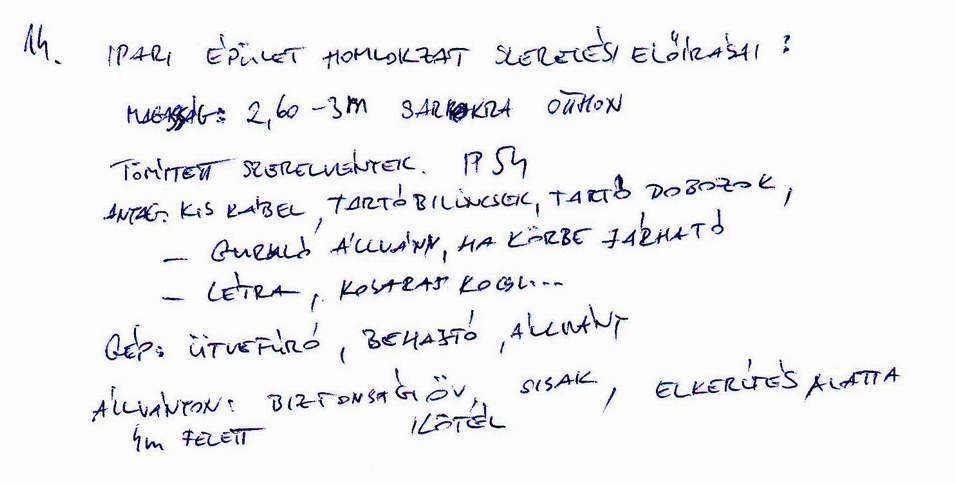 14. IPARI ÉPÜLET HOMLOKZAT SZERELÉSI ELŐÍRÁSAI :
MAGASSÁG: 2,60 - 3M SARKOKRA
TÖMÍTETT SZERELVÉNYEK. IP 54
ANYAG: KIS KÁBEL, TARTÓBILINCSEK, TARTÓ DOBOZOK,
- GURULÓ ÁLLVÁNY, HA KÖRBE JÁRHATÓ
- LÉTRA, KOSARAS
GÉP: ÜTVEFÚRÓ, BEHAJTÓ, ÁLLVÁNY
ÁLLVÁNYON: BIZTONSÁGI ÖV, SISAK, ELKERÍTÉS ALATTA
4m FELETT